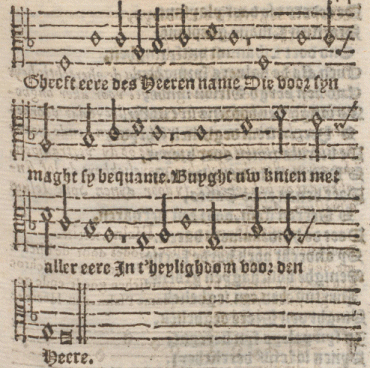 Gheeft eere des Heeren name Die voor syn
maght sy bequame. Buyght uw knien met
aller eere In t'heylighdom voor den
Heere.